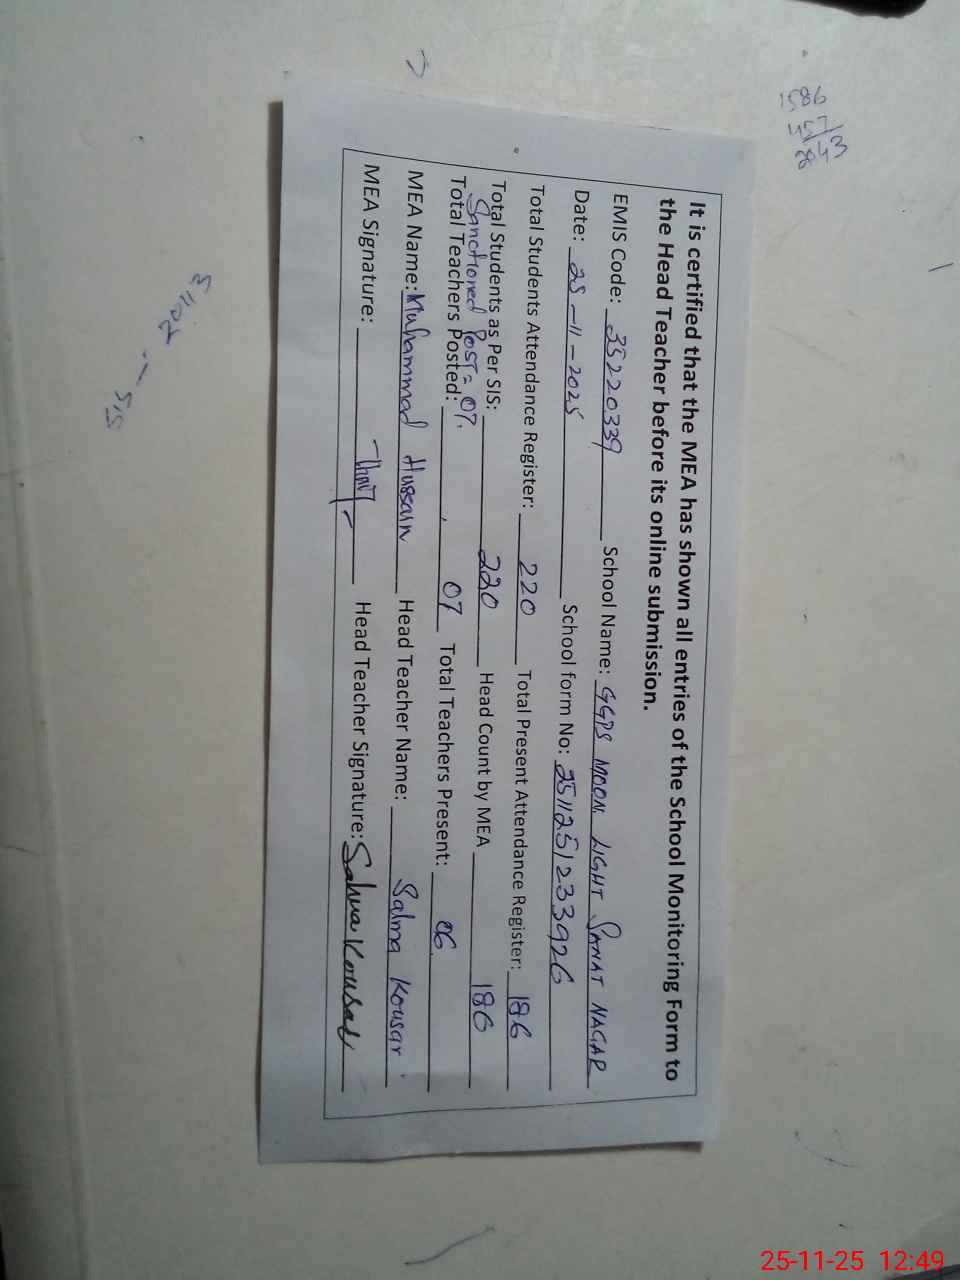 It is certified that the MEA has shown all entries of the School Monitoring Form to
the Head Teacher before its online submission.
EMIS Code: 35220339 School Name: GGPS MOON LIGHT SANAT NAGAR
Date: 25-11-2025 School form No: 2511251233926
Total Students Attendance Register: 220 Total Present Attendance Register: 186
Total Students as Per SIS: 220 Head Count by MEA 186
Sanctioned Post = 07.
Total Teachers Posted: 07 Total Teachers Present: 06
MEA Name: Muhammad Hussain Head Teacher Name: Salma Kousar
MEA Signature: Head Teacher Signature: Salma Kousar
25-11-25 12:49